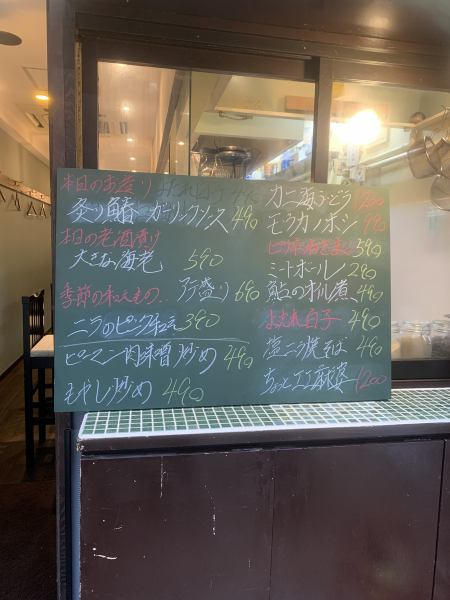 本日のお造り
炙り鰆 ガーリックソース 490
本日の老酒漬け
大きな海老 590
季節の和えもの 盛り 690
ニラのピータン和え 390
ピーマン肉味噌炒め 490
もやし炒め 490
カニ海ぶどう
モウカノホシ 990
390
ミートボール 290
鮎のオイル煮 490
よだれ白子 490
塩ニラ焼そば 490
ちょっと 麻婆 1200